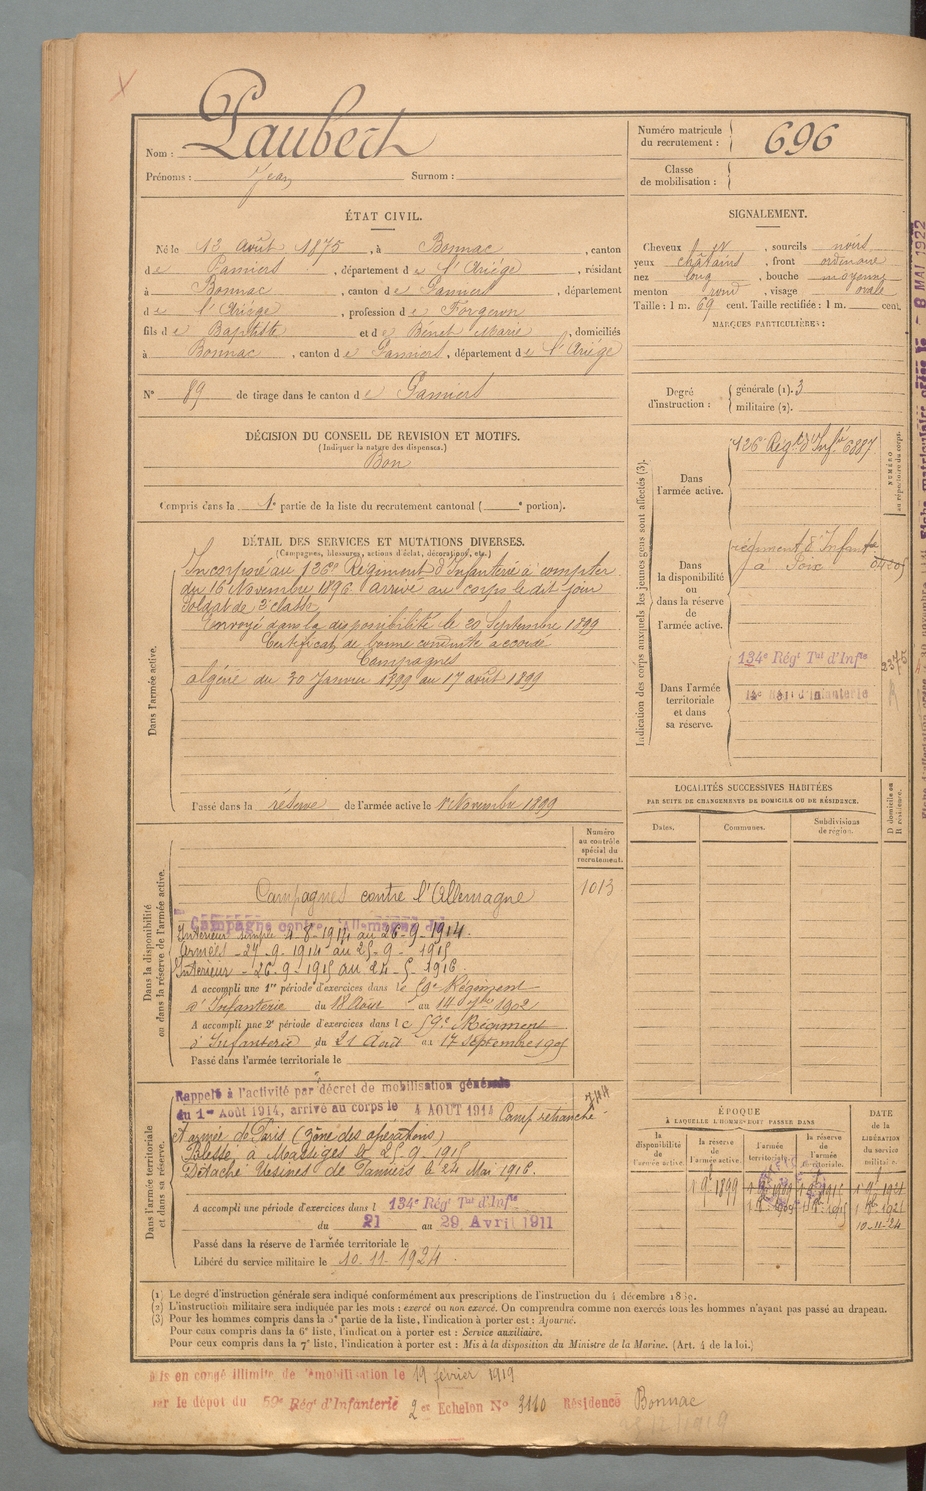 Nom : Laubert
Prénoms : Jean Surnom :
Numéro matricule du recrutement : 696
Classe de mobilisation :
ÉTAT CIVIL.
Né le 12 Août 1875, à Bonnac, canton
de Pamiers, département de l'Ariége, résidant
à Bonnac, canton de Pamiers, département
de l'Ariége, profession de Forgeron
fils de Baptiste et de Bénet Marie, domiciliés
à Bonnac, canton de Pamiers, département de l'Ariége
N° 89 de tirage dans le canton de Pamiers
SIGNALEMENT.
Cheveux, sourcils noirs
yeux châtains, front ordinaire
nez long, bouche moyenne
menton rond, visage ovale
Taille : 1 m. 69 cent. Taille rectifiée : 1 m. cent.
MARQUES PARTICULIÈRES :
Degré d'instruction : générale (1). 3
militaire (2).
DÉCISION DU CONSEIL DE REVISION ET MOTIFS.
(Indiquer la nature des dispenses.)
Bon
Compris dans la 1e partie de la liste du recrutement cantonal ( e portion).
DÉTAIL DES SERVICES ET MUTATIONS DIVERSES.
(Campagnes, blessures, actions d'éclat, décorations, etc.)
Dans l'armée active.
Incorporé au 126e Régiment d'Infanterie à compter
du 16 Novembre 1896 arrivé au corps le dit jour
soldat de 2e classe
Envoyé dans la disponibilité le 20 Septembre 1899
Certificat de bonne conduite accordé
Campagnes
algérie du 30 Janvier 1899 au 17 août 1899
Passé dans la réserve de l'armée active le 1er Novembre 1899
Indication des corps auxquels les jeunes gens sont affectés (3).
Dans l'armée active.
126e Régt d'Infie 6887
NUMÉRO au répertoire du corps.
Dans la disponibilité ou dans la réserve de l'armée active.
régiment d'Infante
à Foix
Dans l'armée territoriale et dans sa réserve.
134e Régt Tal d'Infie
LOCALITÉS SUCCESSIVES HABITÉES
PAR SUITE DE CHANGEMENTS DE DOMICILE OU DE RÉSIDENCE.
Dates. Communes. Subdivisions de région. D domicile ou R résidence.
Dans la disponibilité ou dans la réserve de l'armée active.
Numéro au contrôle spécial du recrutement.
1013
Campagnes contre l'Allemagne
Campagne contre l'Allemagne du
Intérieur simple 4-8-1914 au 26-9-1914.
Armées - 27-9-1914 au 25-9-1915
Intérieur - 26-9-1915 au 24-5-1916.
A accompli une 1re période d'exercices dans le 59e Régiment
d'Infanterie du 18 Août au 14 7bre 1902
A accompli une 2e période d'exercices dans le 59e Régiment
d'Infanterie du 21 Août au 17 Septembre 1905
Passé dans l'armée territoriale le
Dans l'armée territoriale et dans sa réserve.
Rappelé à l'activité par décret de mobilisation générale
du 1er Août 1914, arrivé au corps le 4 AOUT 1914 Camp retranché
et armée de Paris (Zône des opérations)
Blessé à Massiges le 25-9-1915
Détaché Usines de Pamiers le 24 Mai 1916.
A accompli une période d'exercices dans l 134e Régt Tal d'Infie
du 21 au 29 Avril 1911
Passé dans la réserve de l'armée territoriale le
Libéré du service militaire le 10-11-1924.
ÉPOQUE
À LAQUELLE L'HOMME DOIT PASSER DANS
la disponibilité de l'armée active.
la réserve de l'armée active.
l'armée territoriale.
la réserve de l'armée territoriale.
DATE de la LIBÉRATION du service militaire.
10-11-24
(1) Le degré d'instruction générale sera indiqué conformément aux prescriptions de l'instruction du 4 décembre 1889.
(2) L'instruction militaire sera indiquée par les mots : exercé ou non exercé. On comprendra comme non exercés tous les hommes n'ayant pas passé au drapeau.
(3) Pour les hommes compris dans la 5e partie de la liste, l'indication à porter est : Ajourné.
Pour ceux compris dans la 6e liste, l'indication à porter est : Service auxiliaire.
Pour ceux compris dans la 7e liste, l'indication à porter est : Mis à la disposition du Ministre de la Marine. (Art. 4 de la loi.)
Mis en congé illimité de démobilisation le 19 février 1919
par le dépôt du 59e Régt d'Infanterie 2e Echelon N° 3110 Résidence Bonnac
8 MAI 1922